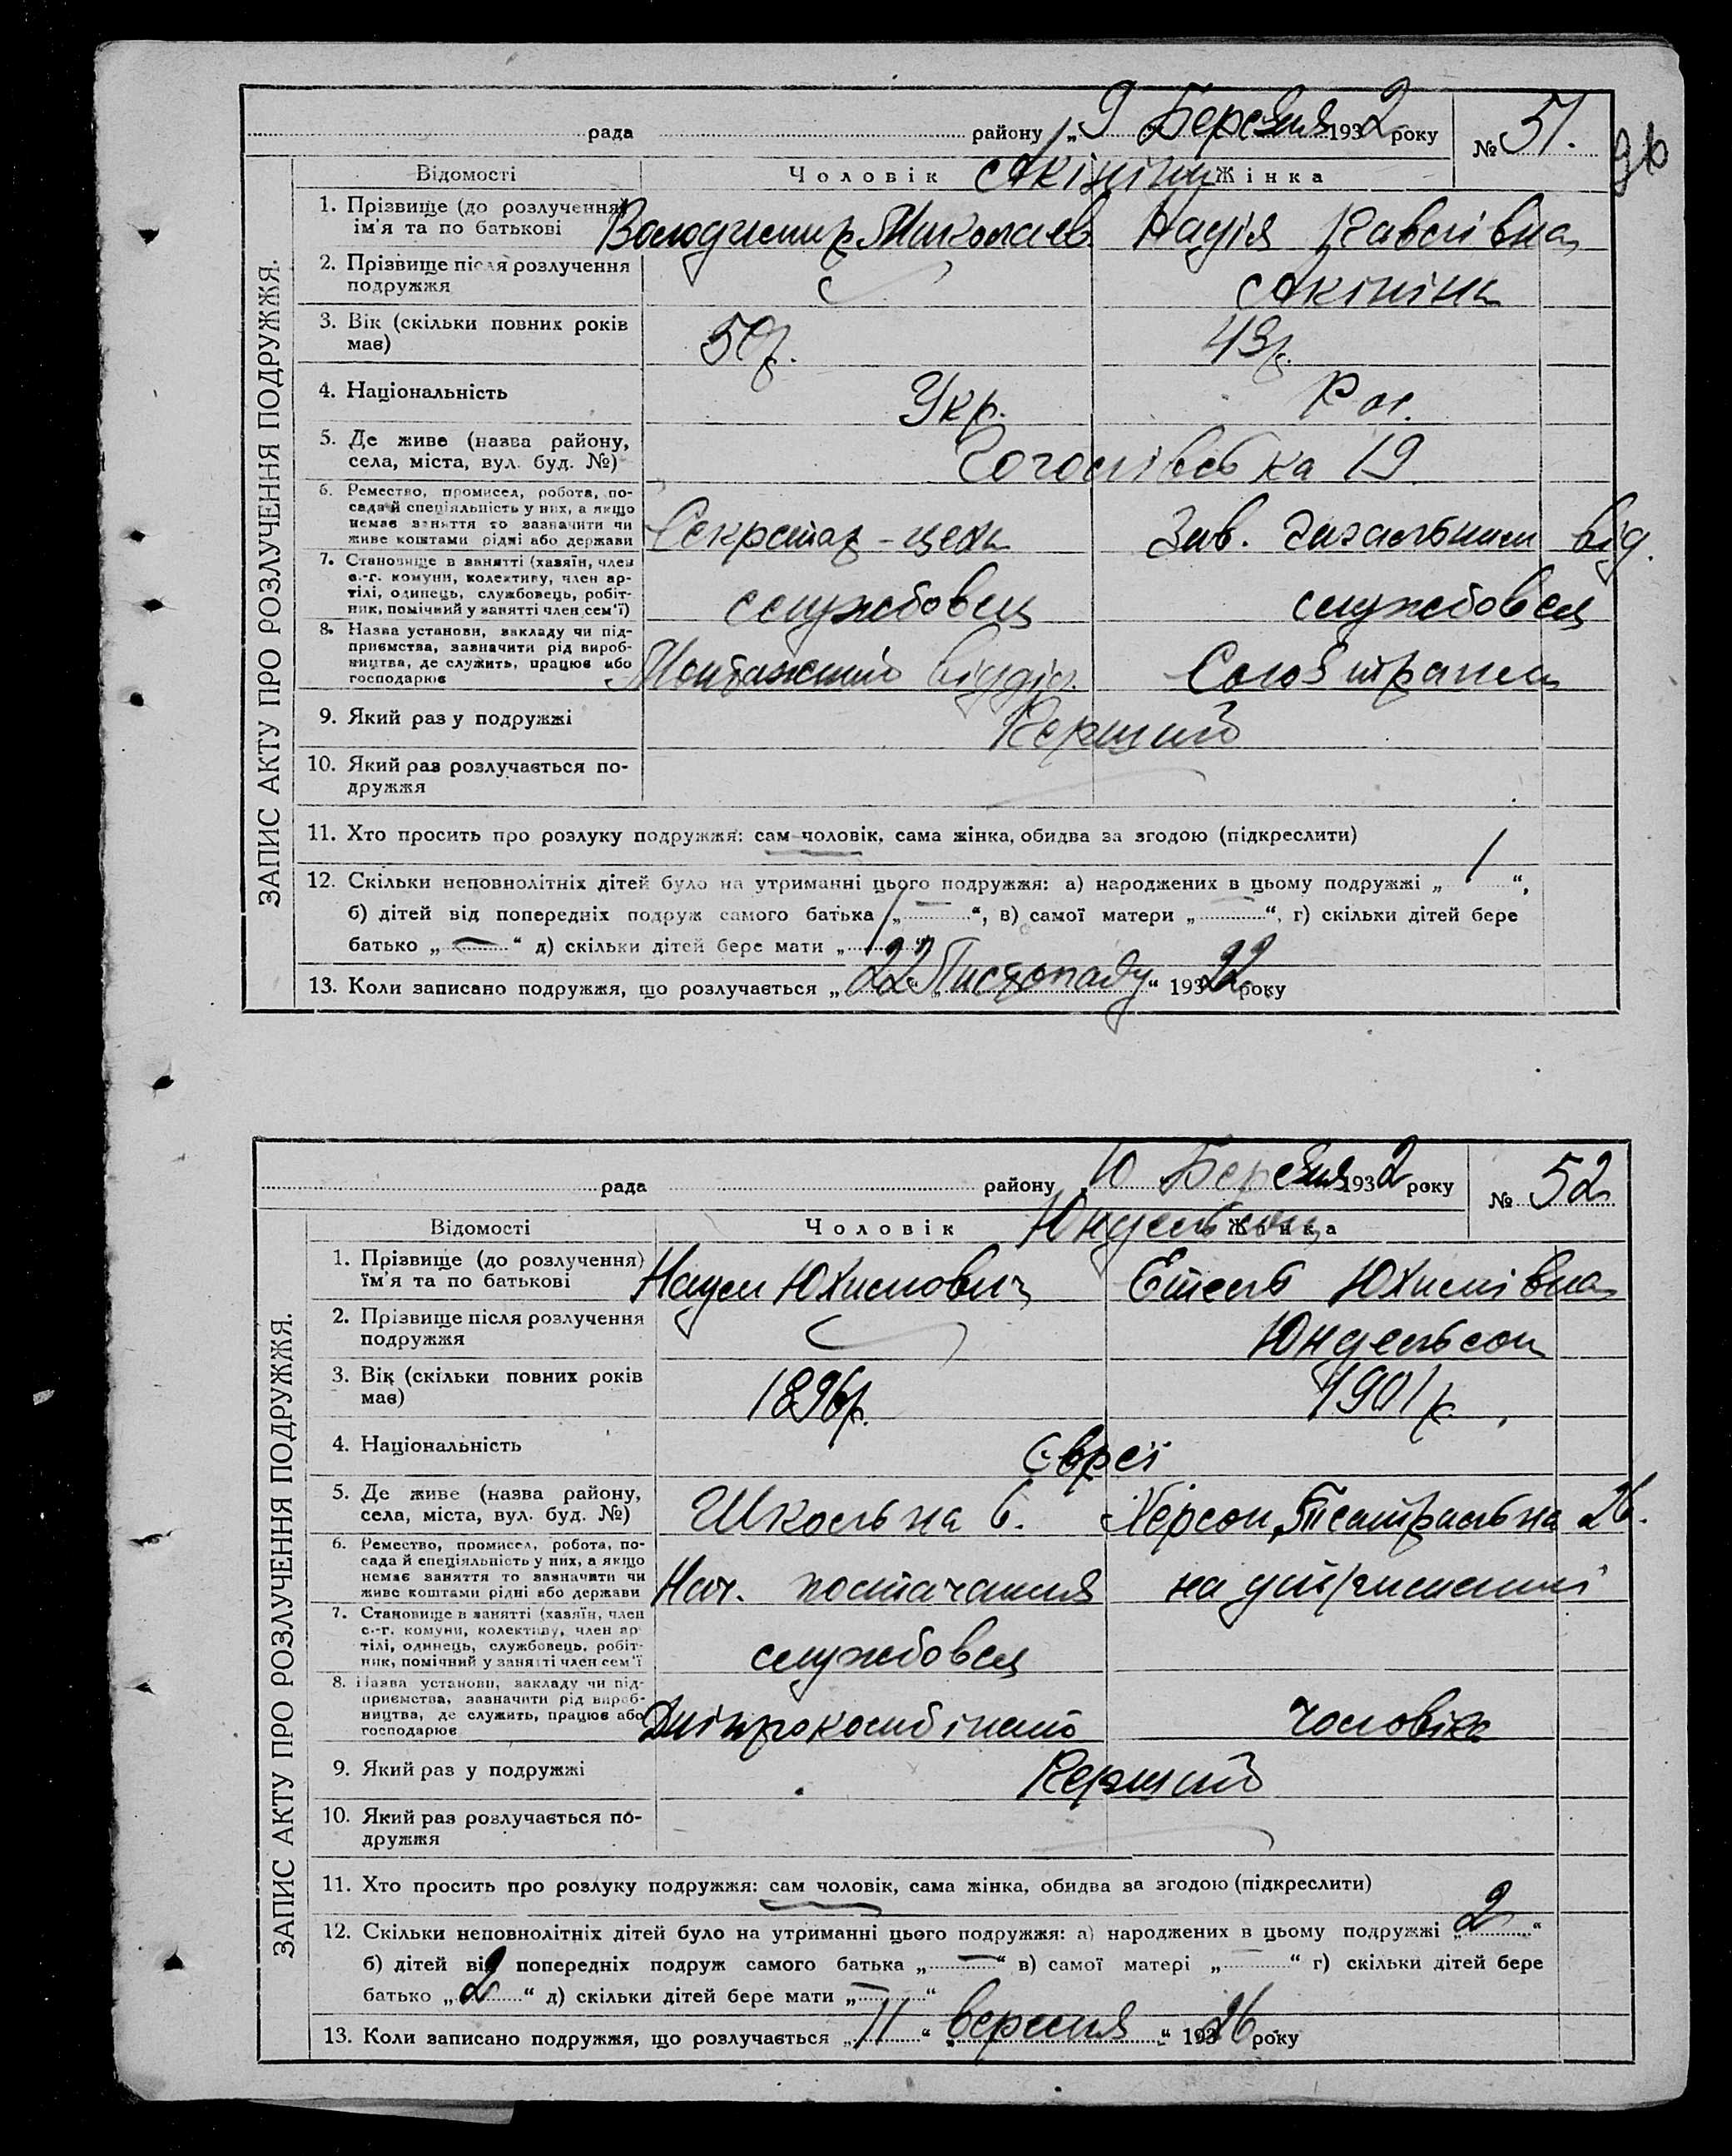 рада району „ 9 Березня 1932 року № 51.
96
ЗАПИС АКТУ ПРО РОЗЛУЧЕННЯ ПОДРУЖЖЯ.
Відомості Чоловік Жінка
Акініни
1. Прізвище (до розлучення) ім'я та по батькові Володимир Миколаєв Надія Павлівна
2. Прізвище після розлучення подружжя Акініна
3. Вік (скільки повних років має) 50р. 43р.
4. Національність Укр. Рос.
5. Де живе (назва району, села, міста, вул. буд. №) Гоголівська 19
6. Ремество, промисел, робота, посада й спеціяльність у них, а якщо немає заняття то зазначити чи живе коштами рідні або держави Секретар-цеха Зав. Загальним від.
7. Становище в занятті (хазяїн, член с.-г. комуни, колективу, член артілі, одинець, службовець, робітник, помічний у занятті член сем'ї) службовец службовец
8. Назва установи, закладу чи підприємства, зазначити рід виробництва, де служить, працює або господарює Монтажний відділ. Союзтранс
9. Який раз у подружжі Перший
10. Який раз розлучається подружжя
11. Хто просить про розлуку подружжя: сам чоловік, сама жінка, обидва за згодою (підкреслити)
12. Скільки неповнолітніх дітей було на утриманні цього подружжя: а) народжених в цьому подружжі „ 1 “,
б) дітей від попередніх подруж самого батька „ — “, в) самої матери „ — “, г) скільки дітей бере
батько „ — “ д) скільки дітей бере мати „ 1 “
13. Коли записано подружжя, що розлучається „ 22 “ „ Листопаду “ 193 22 року
рада району 10 Березня 1932 року № 52
ЗАПИС АКТУ ПРО РОЗЛУЧЕННЯ ПОДРУЖЖЯ.
Відомості Чоловік Жінка
Юндельсон
1. Прізвище (до розлучення) їм'я та по батькові Наум Юхимович Етель Юхимівна
2. Прізвище після розлучення подружжя Юндельсон
3. Вік (скільки повних років має) 1896р. 1901р.
4. Національність Євреї
5. Де живе (назва району, села, міста, вул. буд. №) Школьна 6. Херсон, Театральна 26.
6. Ремество, промисел, робота, посада й спеціяльність у них, а якщо немає заняття то зазначити чи живе коштами рідні або держави Нач. постачання на утриманні
7. Становище в занятті (хазяїн, член с.-г. комуни, колективу, член артілі, одинець, службовець, робітник, помічний у занятті член сем'ї службовец
8. Назва установи, закладу чи підприємства, зазначити рід виробництва, де служить, працює або господарює Дніпрокомбінат чоловіка
9. Який раз у подружжі Перший
10. Який раз розлучається подружжя
11. Хто просить про розлуку подружжя: сам чоловік, сама жінка, обидва за згодою (підкреслити)
12. Скільки неповнолітніх дітей було на утриманні цього подружжя: а) народжених в цьому подружжі „ 2 “
б) дітей від попередніх подруж самого батька „ — “ в) самої матері „ — “ г) скільки дітей бере
батько „ 2 “ д) скільки дітей бере мати „ — “
13. Коли записано подружжя, що розлучається „ 11 “ „ вересня “ 193 26 року